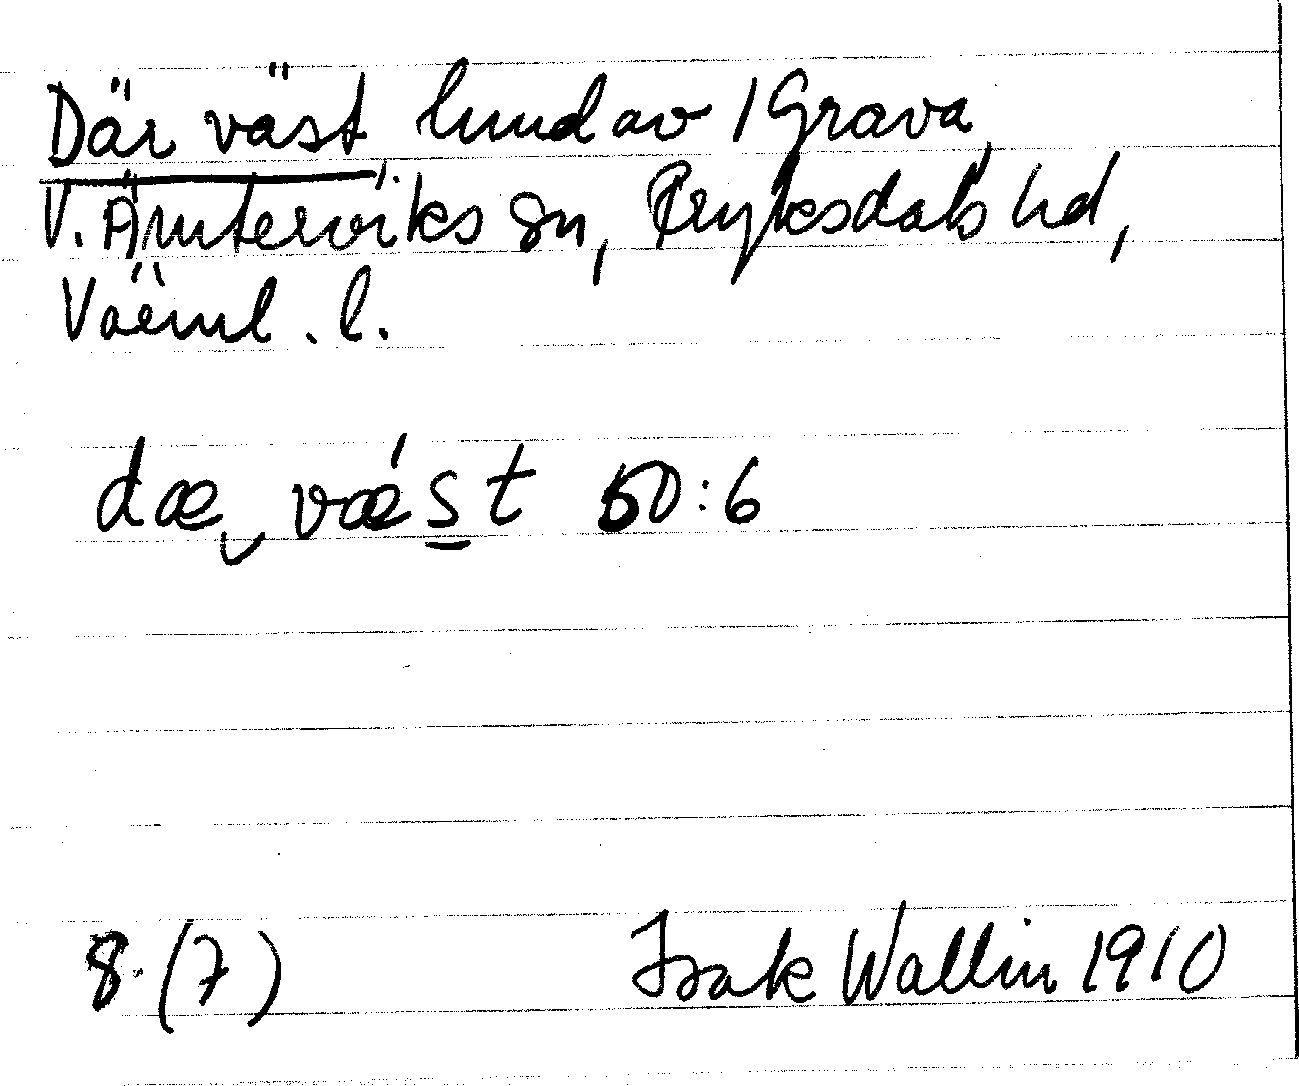 Där väst hmd av 1 Grava,
V. Ämterviks sn, Fryksdals hd,
Värml. l.
dæ vǽst 50:6
8. (7) Isak Wallin 1910